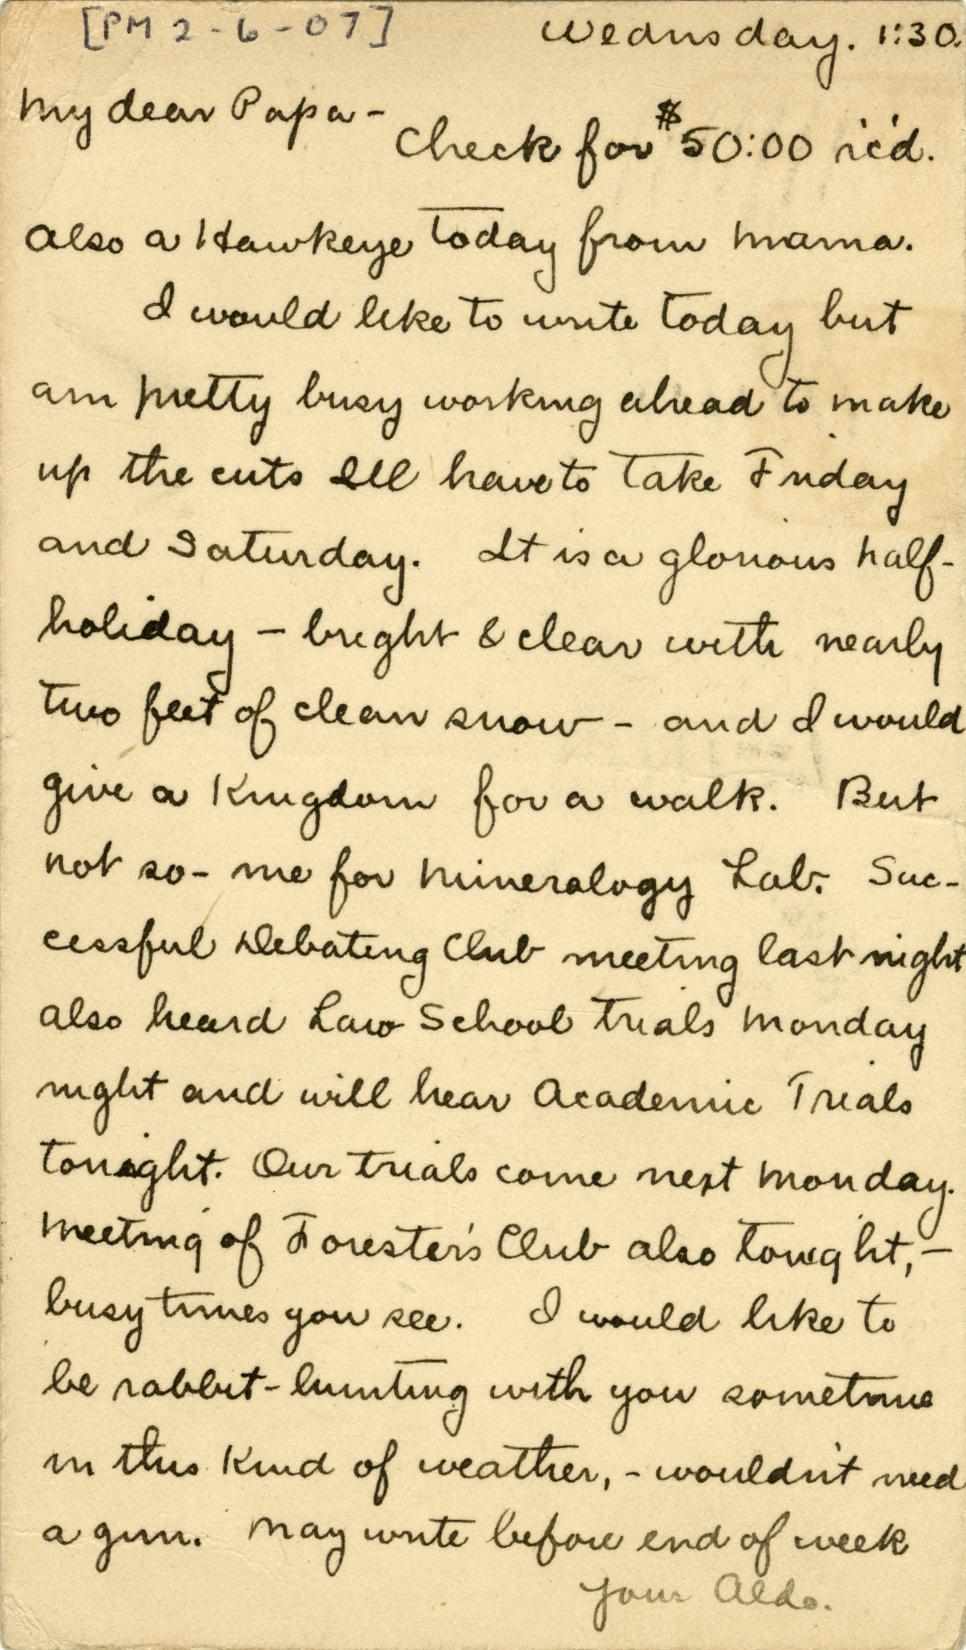 [PM 2-6-07]
Wednsday. 1:30.
My dear Papa -
Check for $50:00 rc'd.
Also a Hawkeye today from Mama.
I would like to write today but
am pretty busy working ahead to make
up the cuts Ill have to take Friday
and Saturday. It is a glorious half-
holiday - bright & clear with nearly
two feet of clean snow - and I would
give a Kingdom for a walk. But
not so - me for Mineralogy Lab. Suc-
cessful Debating Club meeting last night
also heard Law School trials Monday
night and will hear Academic Trials
tonight. Our trials come next Monday.
Meeting of Forester's Club also tonight, -
busy times you see. I would like to
be rabbit-hunting with you sometime
in this Kind of weather, - wouldn't need
a gun. May write before end of week
Your Aldo.